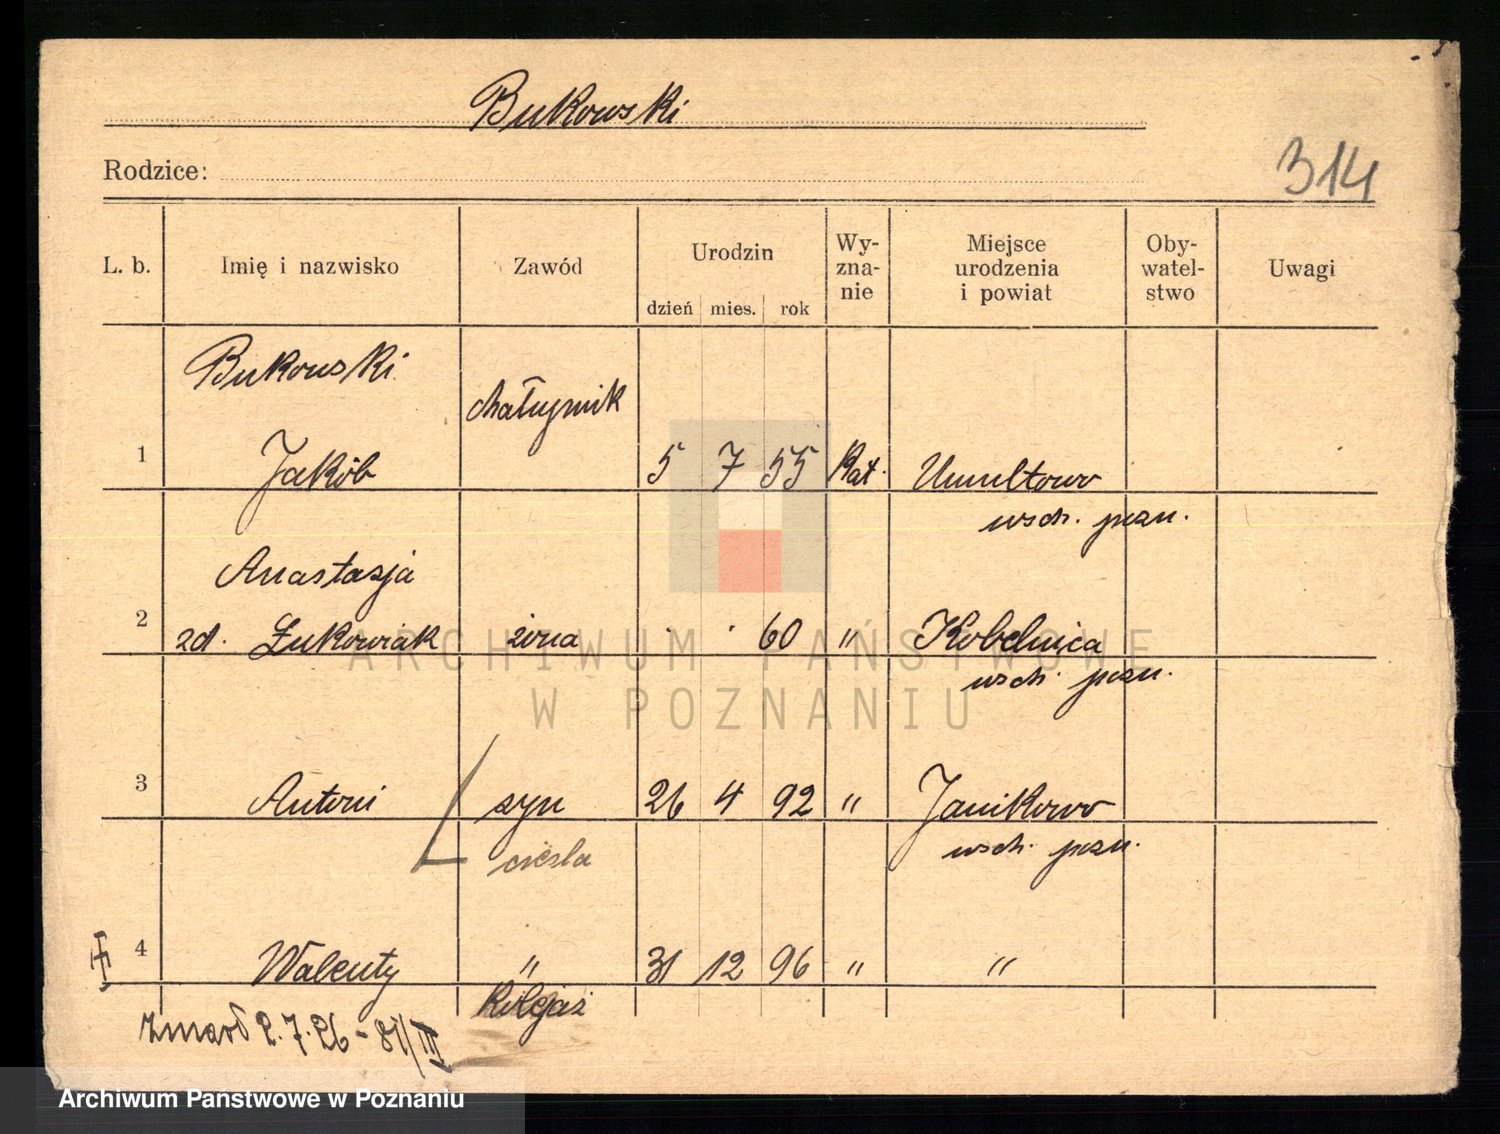 Bukowski
Rodzice:
314
L. b. Imię i nazwisko Zawód Urodzin dzień mies. rok Wy-zna-nie Miejsce urodzenia i powiat Oby-watel-stwo Uwagi
Bukowski
chałupnik
1 Jakób 5 7 55 Kat. Umultowo
wsch. pozn.
Anastazja
2 zd. Łukowiak żona 60 " Kobelnica
wsch. pozn.
3 Antoni syn 26 4 92 " Janikowo
cieśla wsch. pozn.
4 Walenty " 31 12 96 " "
Kolejaż
zmarł 2.7.26 -
ARCHIWUM PAŃSTWOWE
W POZNANIU
Archiwum Państwowe w Poznaniu